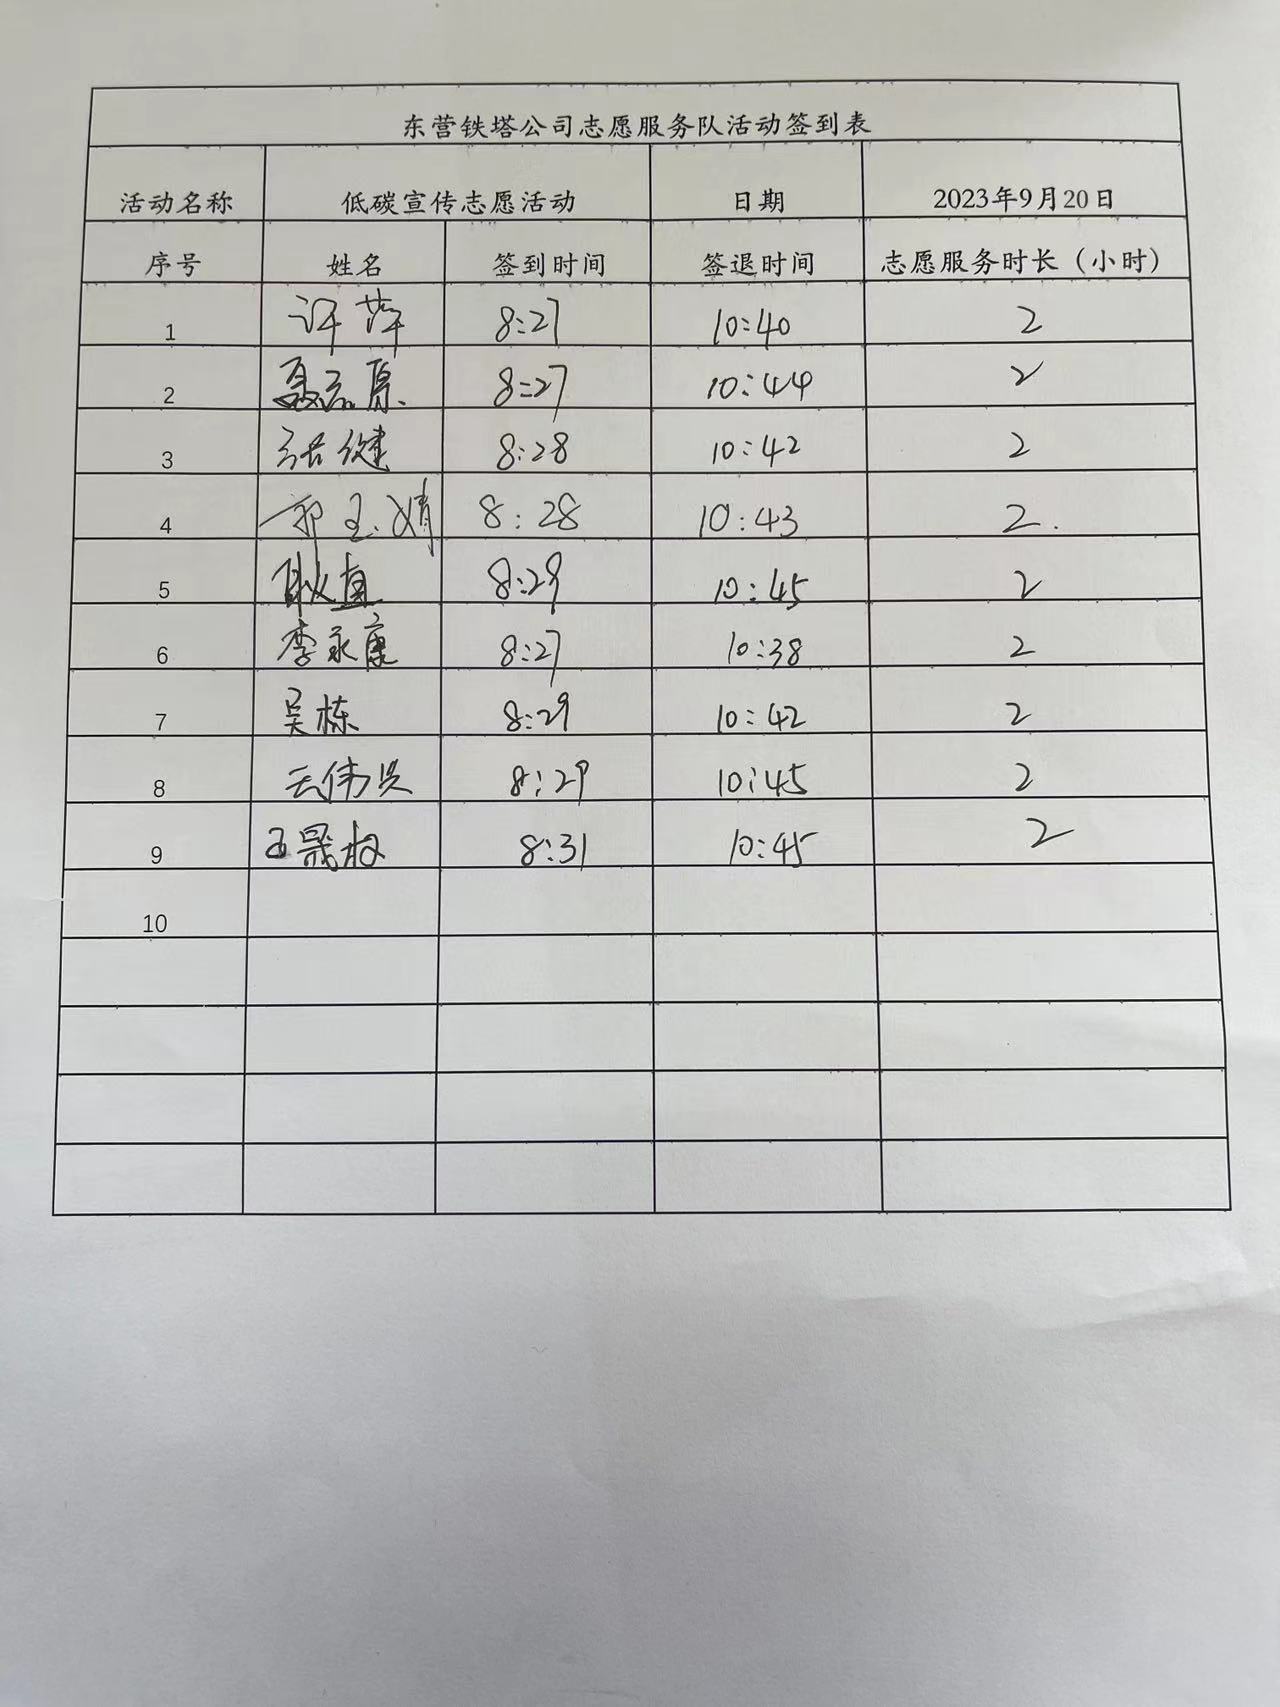 东营铁塔公司志愿服务队活动签到表
活动名称 低碳宣传志愿活动 日期 2023年9月20日
序号 姓名 签到时间 签退时间 志愿服务时长（小时）
1 许萍 8:27 10:40 2
2 8:27 10:44 2
3 张健 8:28 10:42 2
4 郭玉婧 8:28 10:43 2.
5 耿直 8:29 10:45 2
6 李永康 8:27 10:38 2
7 吴栋 8:29 10:42 2
8 8:29 10:45 2
9 王晟权 8:31 10:45 2
10